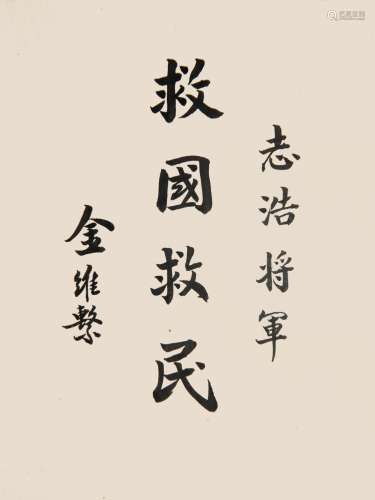 志浩将軍
救國救民
金維繫